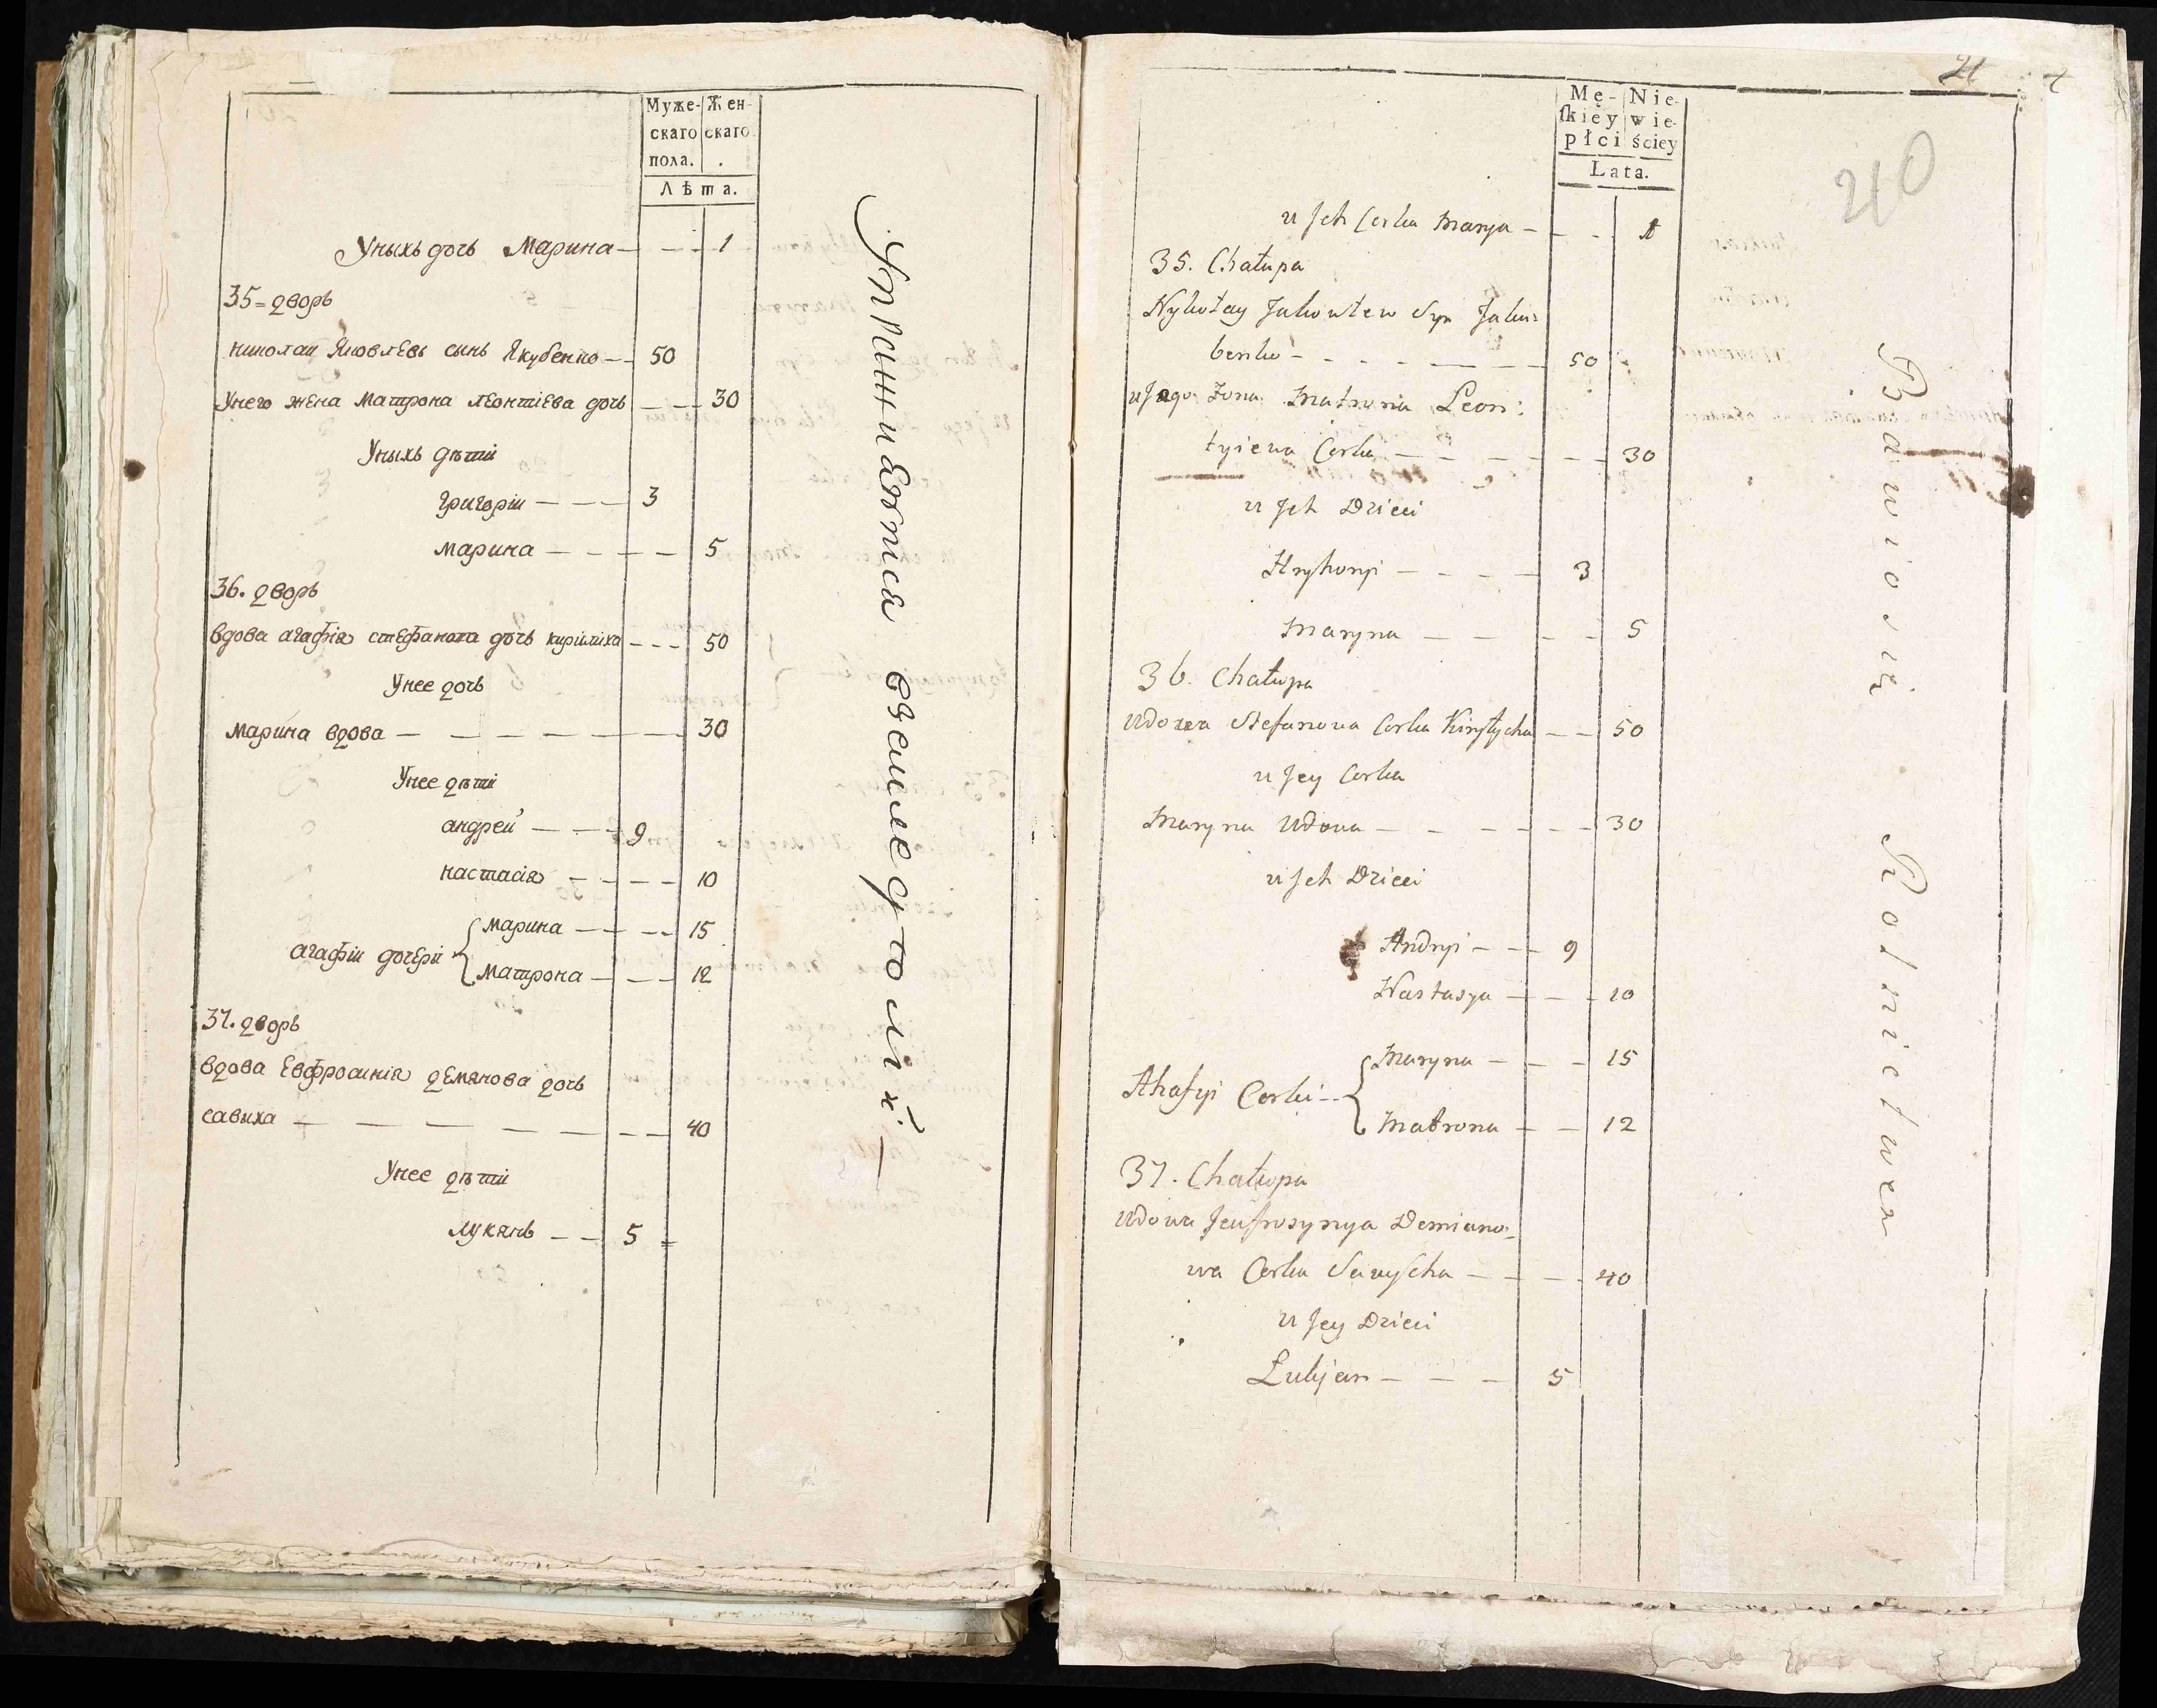 Муже-
скаго
пола.
Жен-
скаго
.
Лѣта.
Уныхъ дочь Марина — — — 1
35 = дворъ
николай Яковлевъ сынъ Якубенко — — 50
Унего жена матрона леонтіева дочь — — — 30
Уныхъ дѣти
григоріи — — — 3
марина — — — — 5
36. дворъ
вдова агафія стефанова дочь кириллиха — — — 50
Унее дочь
марина вдова — — — — — — — 30
Унее дѣти
андрей — — — 9
настасія — — — — 10
агафіи дочери { марина — — — — 15
матрона — — — 12
37. дворъ
вдова Евфросинія демянова дочь
савиха — — — — — — — — 40
Унее дѣти
лукянъ — — 5 =
Упражняются вземледѣлии —
21
40
Mę-
skiey
płci
Nie-
wie-
ściey
Lata.
u Jch Corka Marya — — - 1
35. Chałupa
Nykołay Jakowlew Syn Jaku=
benko - - - - — — — 50
u Jego Zona Matrona Leon=
tyiewa Corka — - - - — — 30
u Jch Dzieci
Hryhoryi — - - — 3
Maryna — — - - 5
36. Chałupa
Udowa Stefanowa Corka Kiryłycha — — 50
u Jey Corka
Maryna Udowa — - - — — — 30
u Jch Dzieci
Andryi — — — 9
Nastasya — — - 10
Ahafyi Corki -- { Maryna — — - 15
Matrona — — 12
37. Chałupa
Udowa Jeufrosynya Demiano=
wa Corka Sawycha — — — - 40
u Jey Dzieci
Łukjan — — — 5
Bawio się Rolnictwem